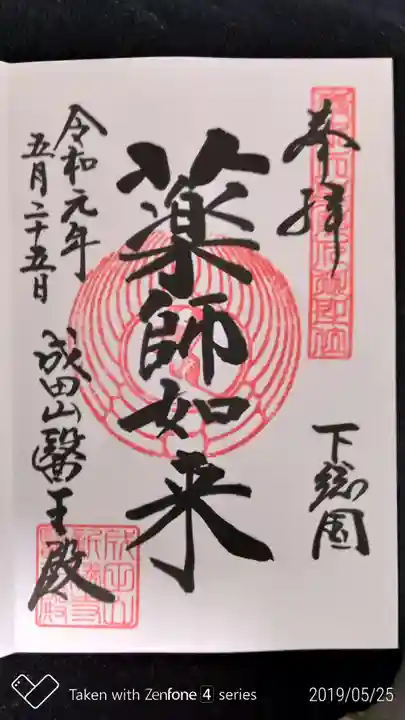 奉拝
下総國
薬師如来
令和元年
五月二十五日
成田山醫王殿
Taken with Zenfone 4 series
2019/05/25